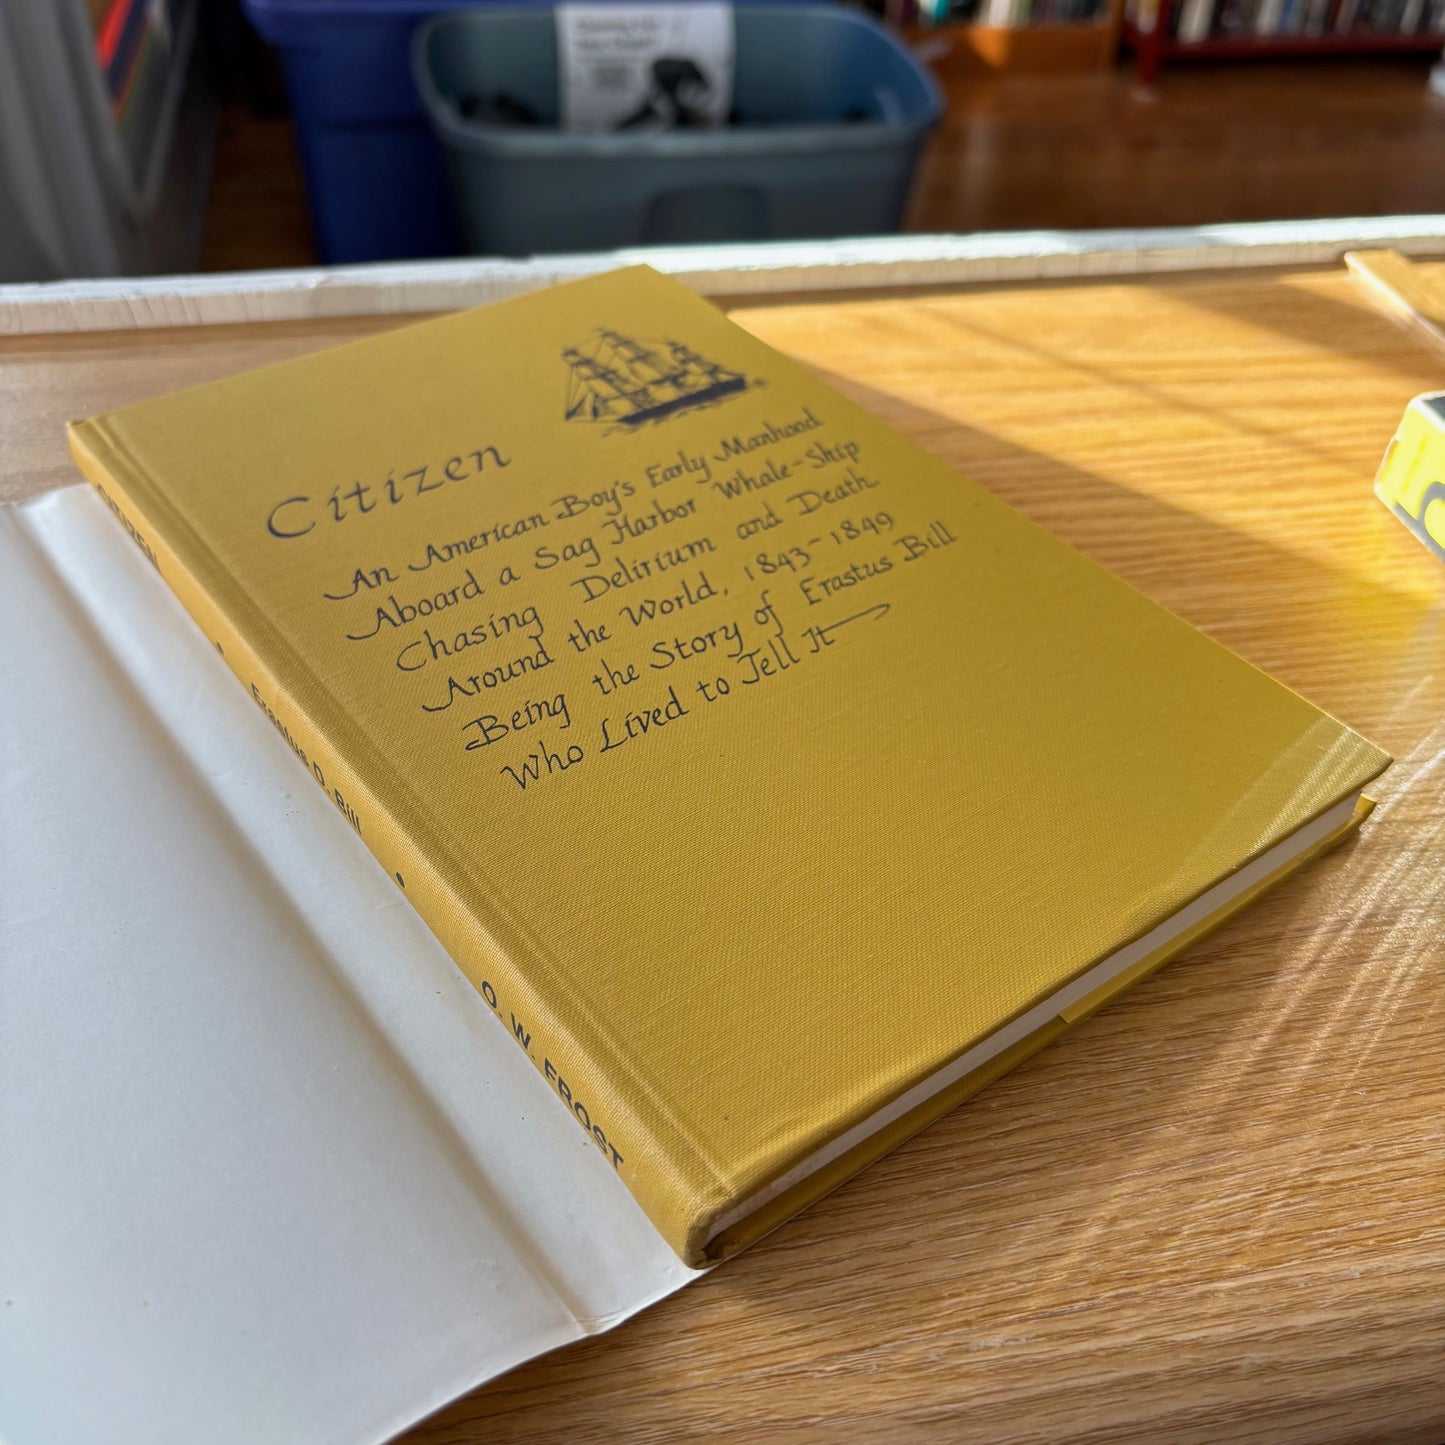 Citizen
An American Boy's Early Manhood
Aboard a Sag Harbor Whale-Ship
Chasing Delirium and Death
Around the World, 1843-1849
Being the Story of Erastus Bill
Who Lived to Tell It
CITIZEN • Erastus D. Bill • O. W. FROST